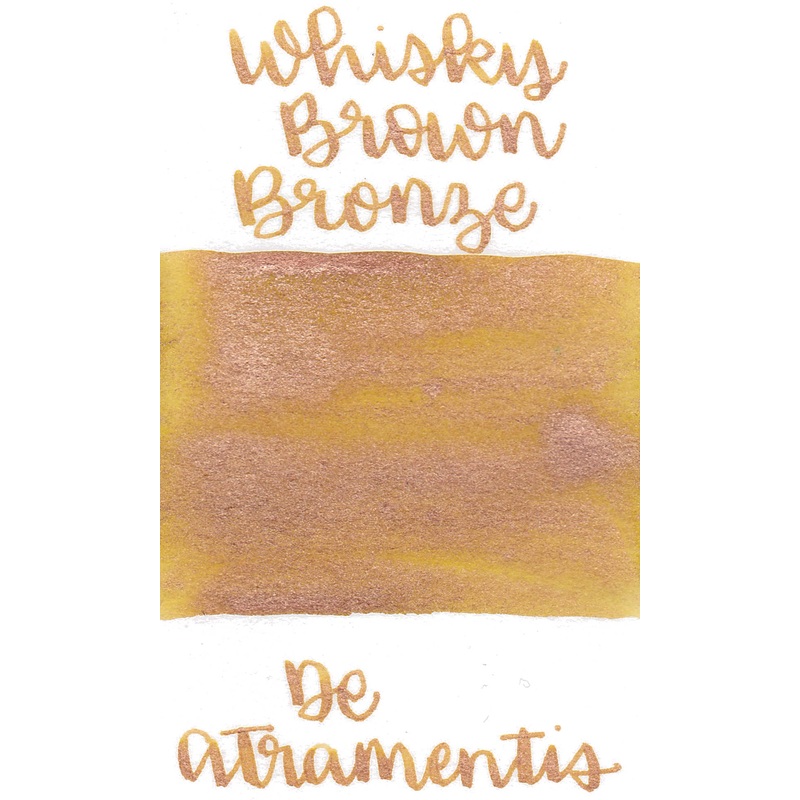 Whisky
Brown
Bronze
De
Atramentis